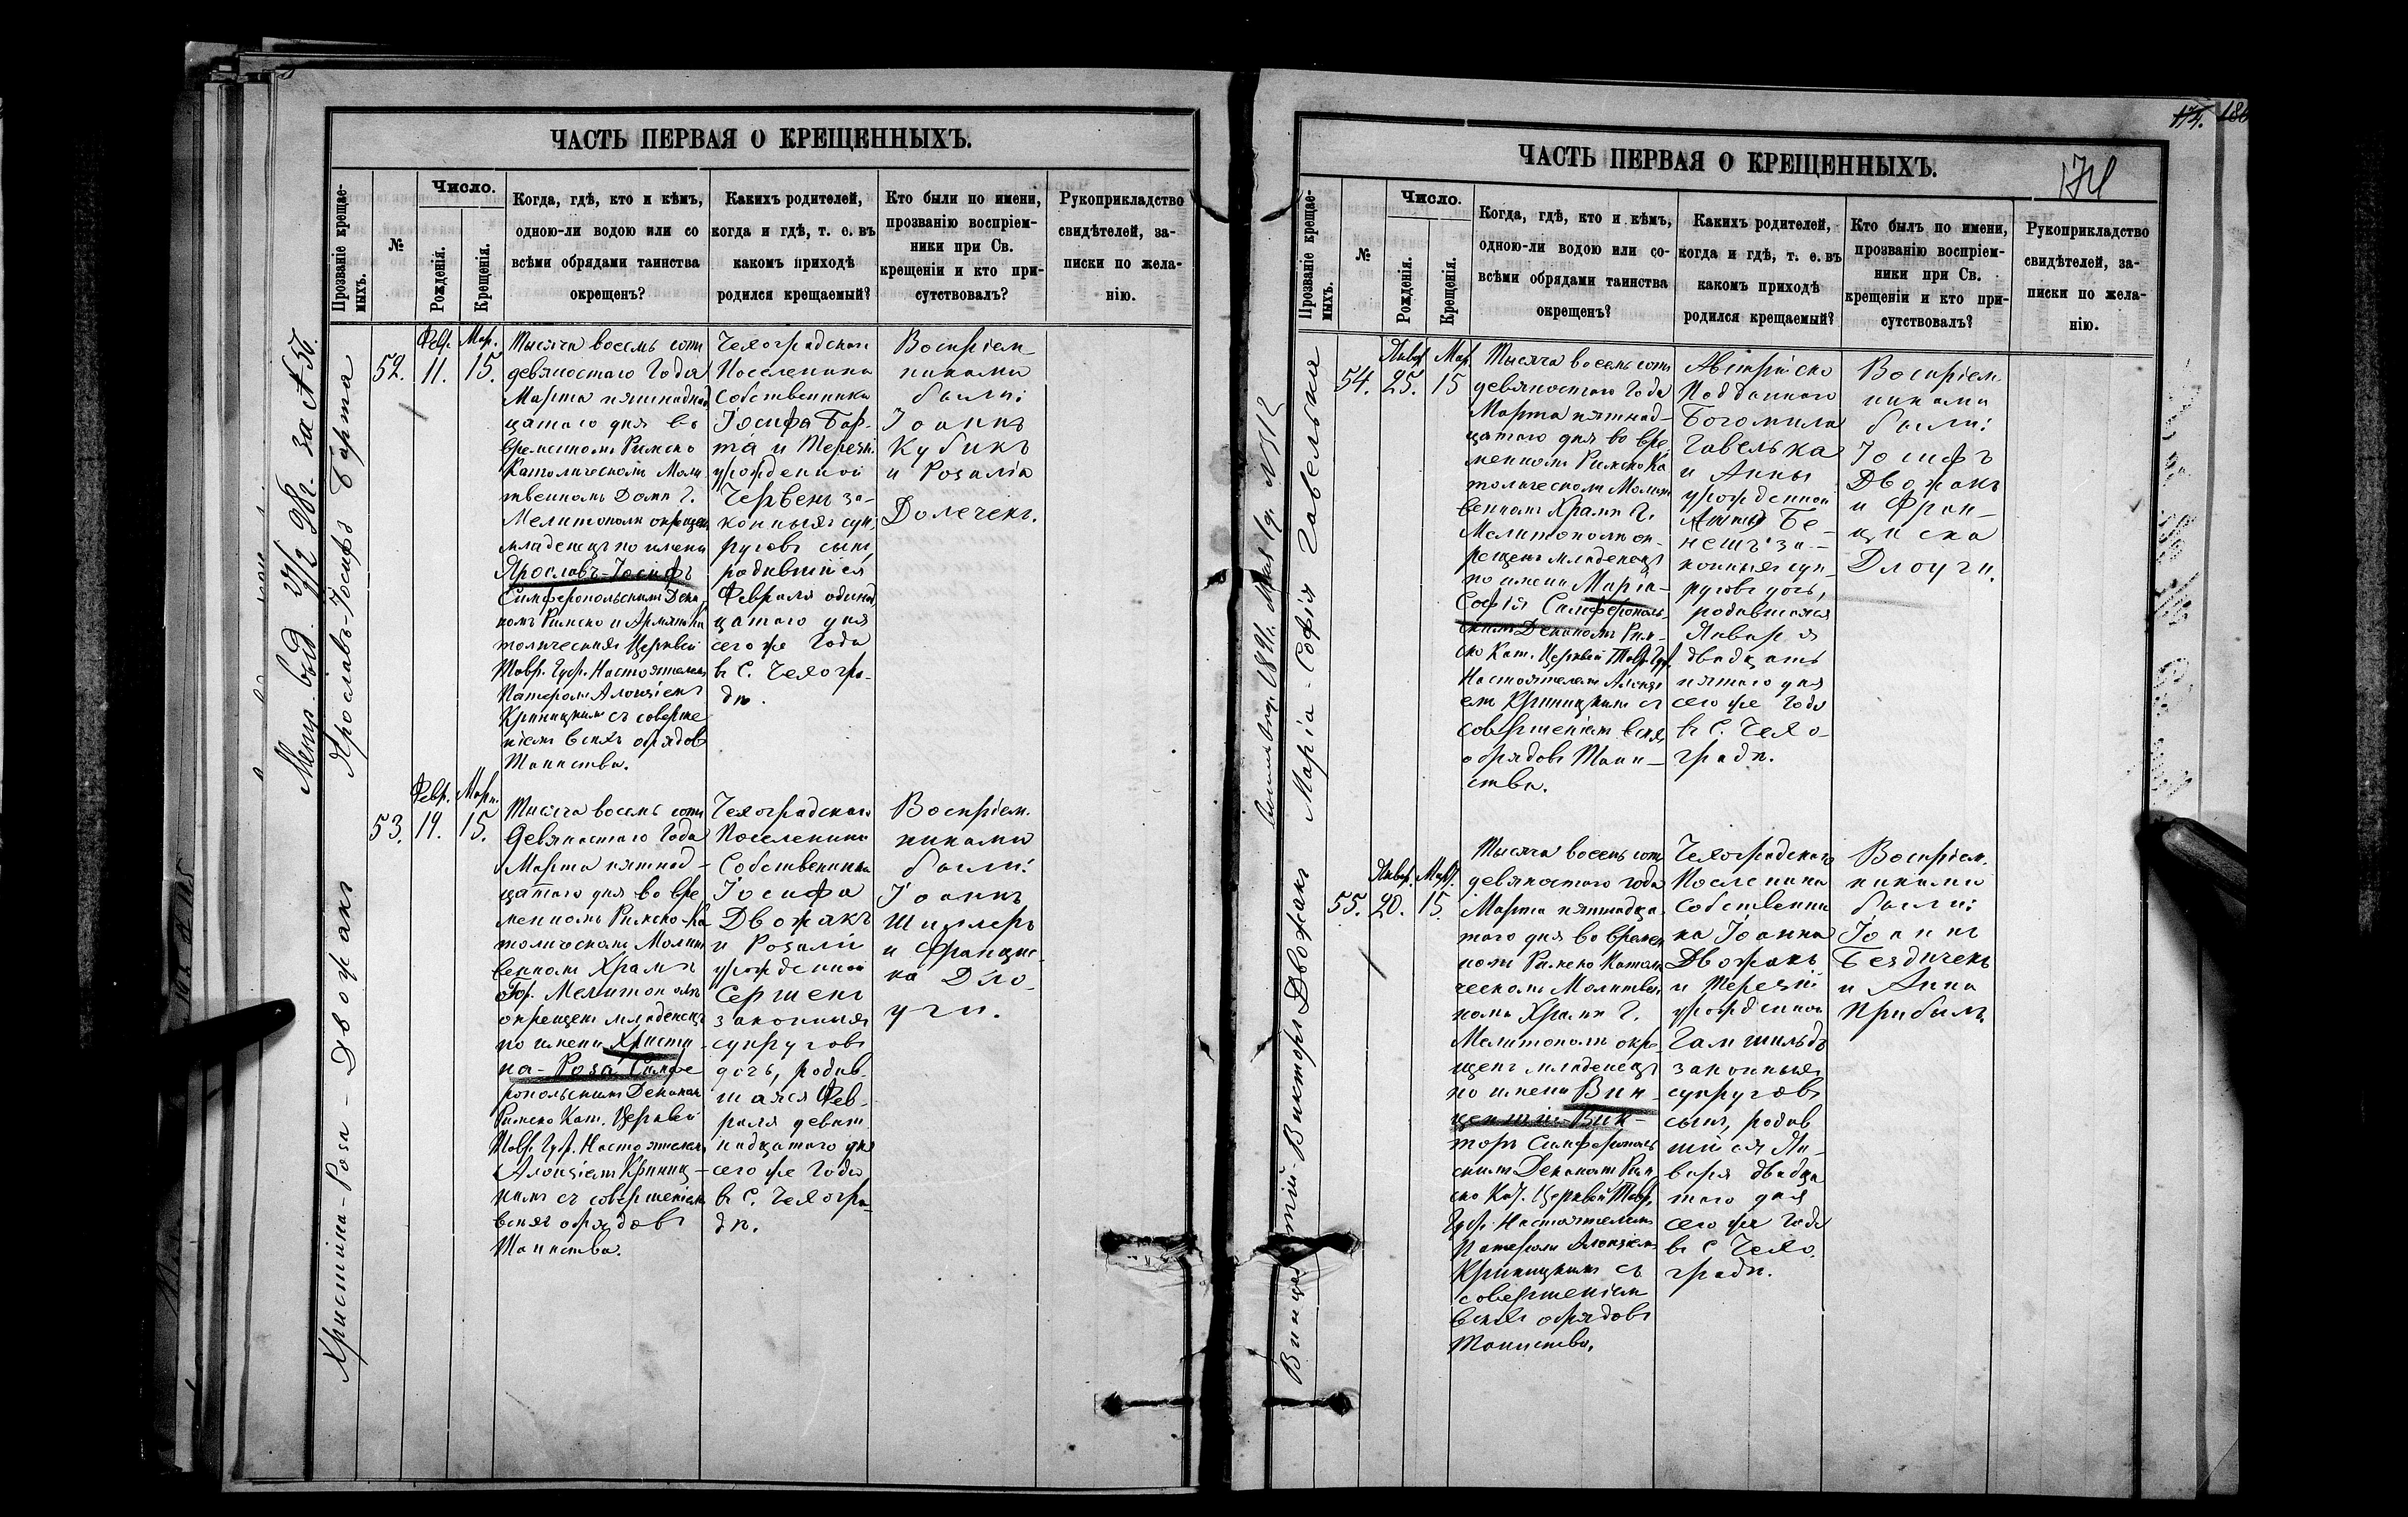 ЧАСТЬ ПЕРВАЯ О КРЕЩЕННЫХЪ.
Прозваніе крещае-
мыхъ.
№
Число.
Рожденія.
Крещенія.
Когда, гдѣ, кто и кѣмъ,
одною-ли водою или со
всѣми обрядами таинства
окрещенъ?
Какихъ родителей,
когда и гдѣ, т. е. въ
какомъ приходѣ
родился крещаемый?
Кто были по имени,
прозванію воспріем-
ники при Св.
крещеніи и кто при-
сутствовалъ?
Рукоприкладство
свидѣтелей, за-
писки по жела-
нію.
Метр. выд. 27/2 98г. за № 56.
Ярославъ-Іосифъ Барта
52.
Февр.
11.
Мар.
15.
Тысяча восемь сотъ
девяностаго Года
Марта пятнад
цатаго дня во
временномъ Римско
Католическомъ Моли
твенномъ Домѣ Г.
Мелитополя окрещенъ
младенецъ по имени
Ярославъ-Іосифъ
Симферопольскимъ Дека
номъ Римско и Армяно Ка
толическихъ Церквей
Тавр. Губ. Настоятелемъ
Патеромъ Алоизіемъ
Криницкимъ съ соверше
ніемъ всѣхъ обрядовъ
Таинства.
Чехоградскаго
Поселянина
Собственника
Іосифа Бар-
та и Терезіи
урожденной
Червенъ за-
конныхъ суп
руговъ сынъ,
родившійся
Февраля одинад
цатаго дня
сего же Года
въ С. Чехогра-
дѣ.
Воспріем
никами
были:
Іоаннъ
Кубикъ
и Розалія
Долечекъ.
Христина-Роза - Двожакъ
53.
Февр.
19.
Март.
15.
Тысяча восемь сотъ
Девяностаго Года
Марта пятнад-
цатаго дня во вре
менномъ Римско-Ка
толическомъ Молит
венномъ Храмѣ
Гор. Мелитополя
окрещенъ младенецъ
по имени Христи
на-Роза Симфе
ропольскимъ Деканомъ
Римско Кат. Церквей
Тавр. Губ. Настоятелемъ
Алоизіемъ Криниц-
кимъ съ совершеніемъ
всѣхъ обрядовъ
Таинства.
Чехоградскаго
Поселянина
Собственника
Іосифа
Двожакъ
и Розаліи
урожденной
Сершенъ
законныхъ
супруговъ
дочь, родив-
шаяся Фев-
раля девят
надцатаго дня
сего же Года
въ С. Чехогра-
дѣ.
Воспріем-
никами
были:
Іоаннъ
Шиллеръ
и Францис-
ка Дло-
уги.
174. 180
174
ЧАСТЬ ПЕРВАЯ О КРЕЩЕННЫХЪ.
Прозваніе крещае-
мыхъ.
№
Число.
Рожденія.
Крещенія.
Когда, гдѣ, кто и кѣмъ,
одною-ли водою или со-
всѣми обрядами таинства
окрещенъ?
Какихъ родителей,
когда и гдѣ, т. е. въ
какомъ приходѣ
родился крещаемый?
Кто былъ по имени,
прозванію воспріем-
ники при Св.
крещеніи и кто при-
сутствовалъ?
Рукоприкладство
свидѣтелей, за-
писки по жела-
нію.
Марія-Софія Гавелька
54.
Январ.
25.
Мар.
15
Тысяча восемь сотъ
девяностаго Года
Марта пятнад-
цатаго дня во вре
менномъ Римско Ка
толическомъ Молит
венномъ Храмѣ Г.
Мелитополя ок-
рещенъ младенецъ
по имени Марія-
Софія Симферополь-
скимъ Деканомъ Рим-
ско Кат. Церквей Тавр. Губ.
Настоятелемъ Алоизі
емъ Криницкимъ съ
совершеніемъ всѣхъ
обрядовъ Таин-
ства.
Австрійско
Подданнаго
Богомила
Гавелька
и Анны
урожденной
Бе-
нешъ за-
конныхъ суп-
руговъ дочь,
родившаяся
Января
двадцать
пятаго дня
сего же Года
въ С. Чехо-
градѣ.
Воспріем-
никами
были:
Іосифъ
Двожакъ
и Фран-
циска
Длоуги.
Винцентій-Викторъ Двожакъ
55.
Январ.
20.
Март.
15.
Тысяча восемь сотъ
девяностаго года
Марта пятнадца-
таго дня во времен
номъ Римско Католи
ческомъ Молитвен
номъ Храмѣ Г.
Мелитополя окре-
щенъ младенецъ
по имени Вин-
центій-Вик-
торъ Симферополь
скимъ Деканомъ Рим
ско Кат. Церквей Тавр.
Губ. Настоятелемъ
Патеромъ Алоизіемъ
Криницкимъ съ
совершеніемъ
всѣхъ обрядовъ
Таинства.
Чехоградскаго
Поселянина
Собственни
ка Іоанна
Двожакъ
и Терезіи
урожденной
Гамшильдъ
законныхъ
супруговъ
сынъ, родив
шійся Ян-
варя двадца
таго дня
сего же Года
въ С Чехо-
градѣ.
Воспріем-
никами
были:
Іоаннъ
Бездичекъ
и Анна
Прибылъ.